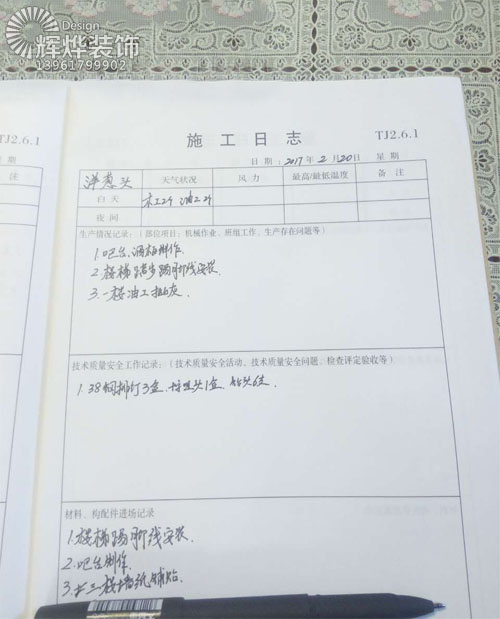 Design
辉烨装饰
13961799902
TJ2.6.1
施工日志 TJ2.6.1
日期：2017年2月20日 星期
星期
洋葱头 天气状况 风力 最高/最低温度 备注
注
白天 木工2个 油工2个
夜间
生产情况记录：（部位项目：机械作业、班组工作、生产存在问题等）
1.吧台、酒柜制作
2.楼梯踏步踢脚线安装
3.一楼油工批灰
技术质量安全工作记录：（技术质量安全活动、技术质量安全问题、检查评定验收等）
1.38钢排钉3盒、 头1盒
材料、构配件进场记录
1.楼梯踢脚线安装.
2.吧台制作.
3.十三楼墙纸铺贴.